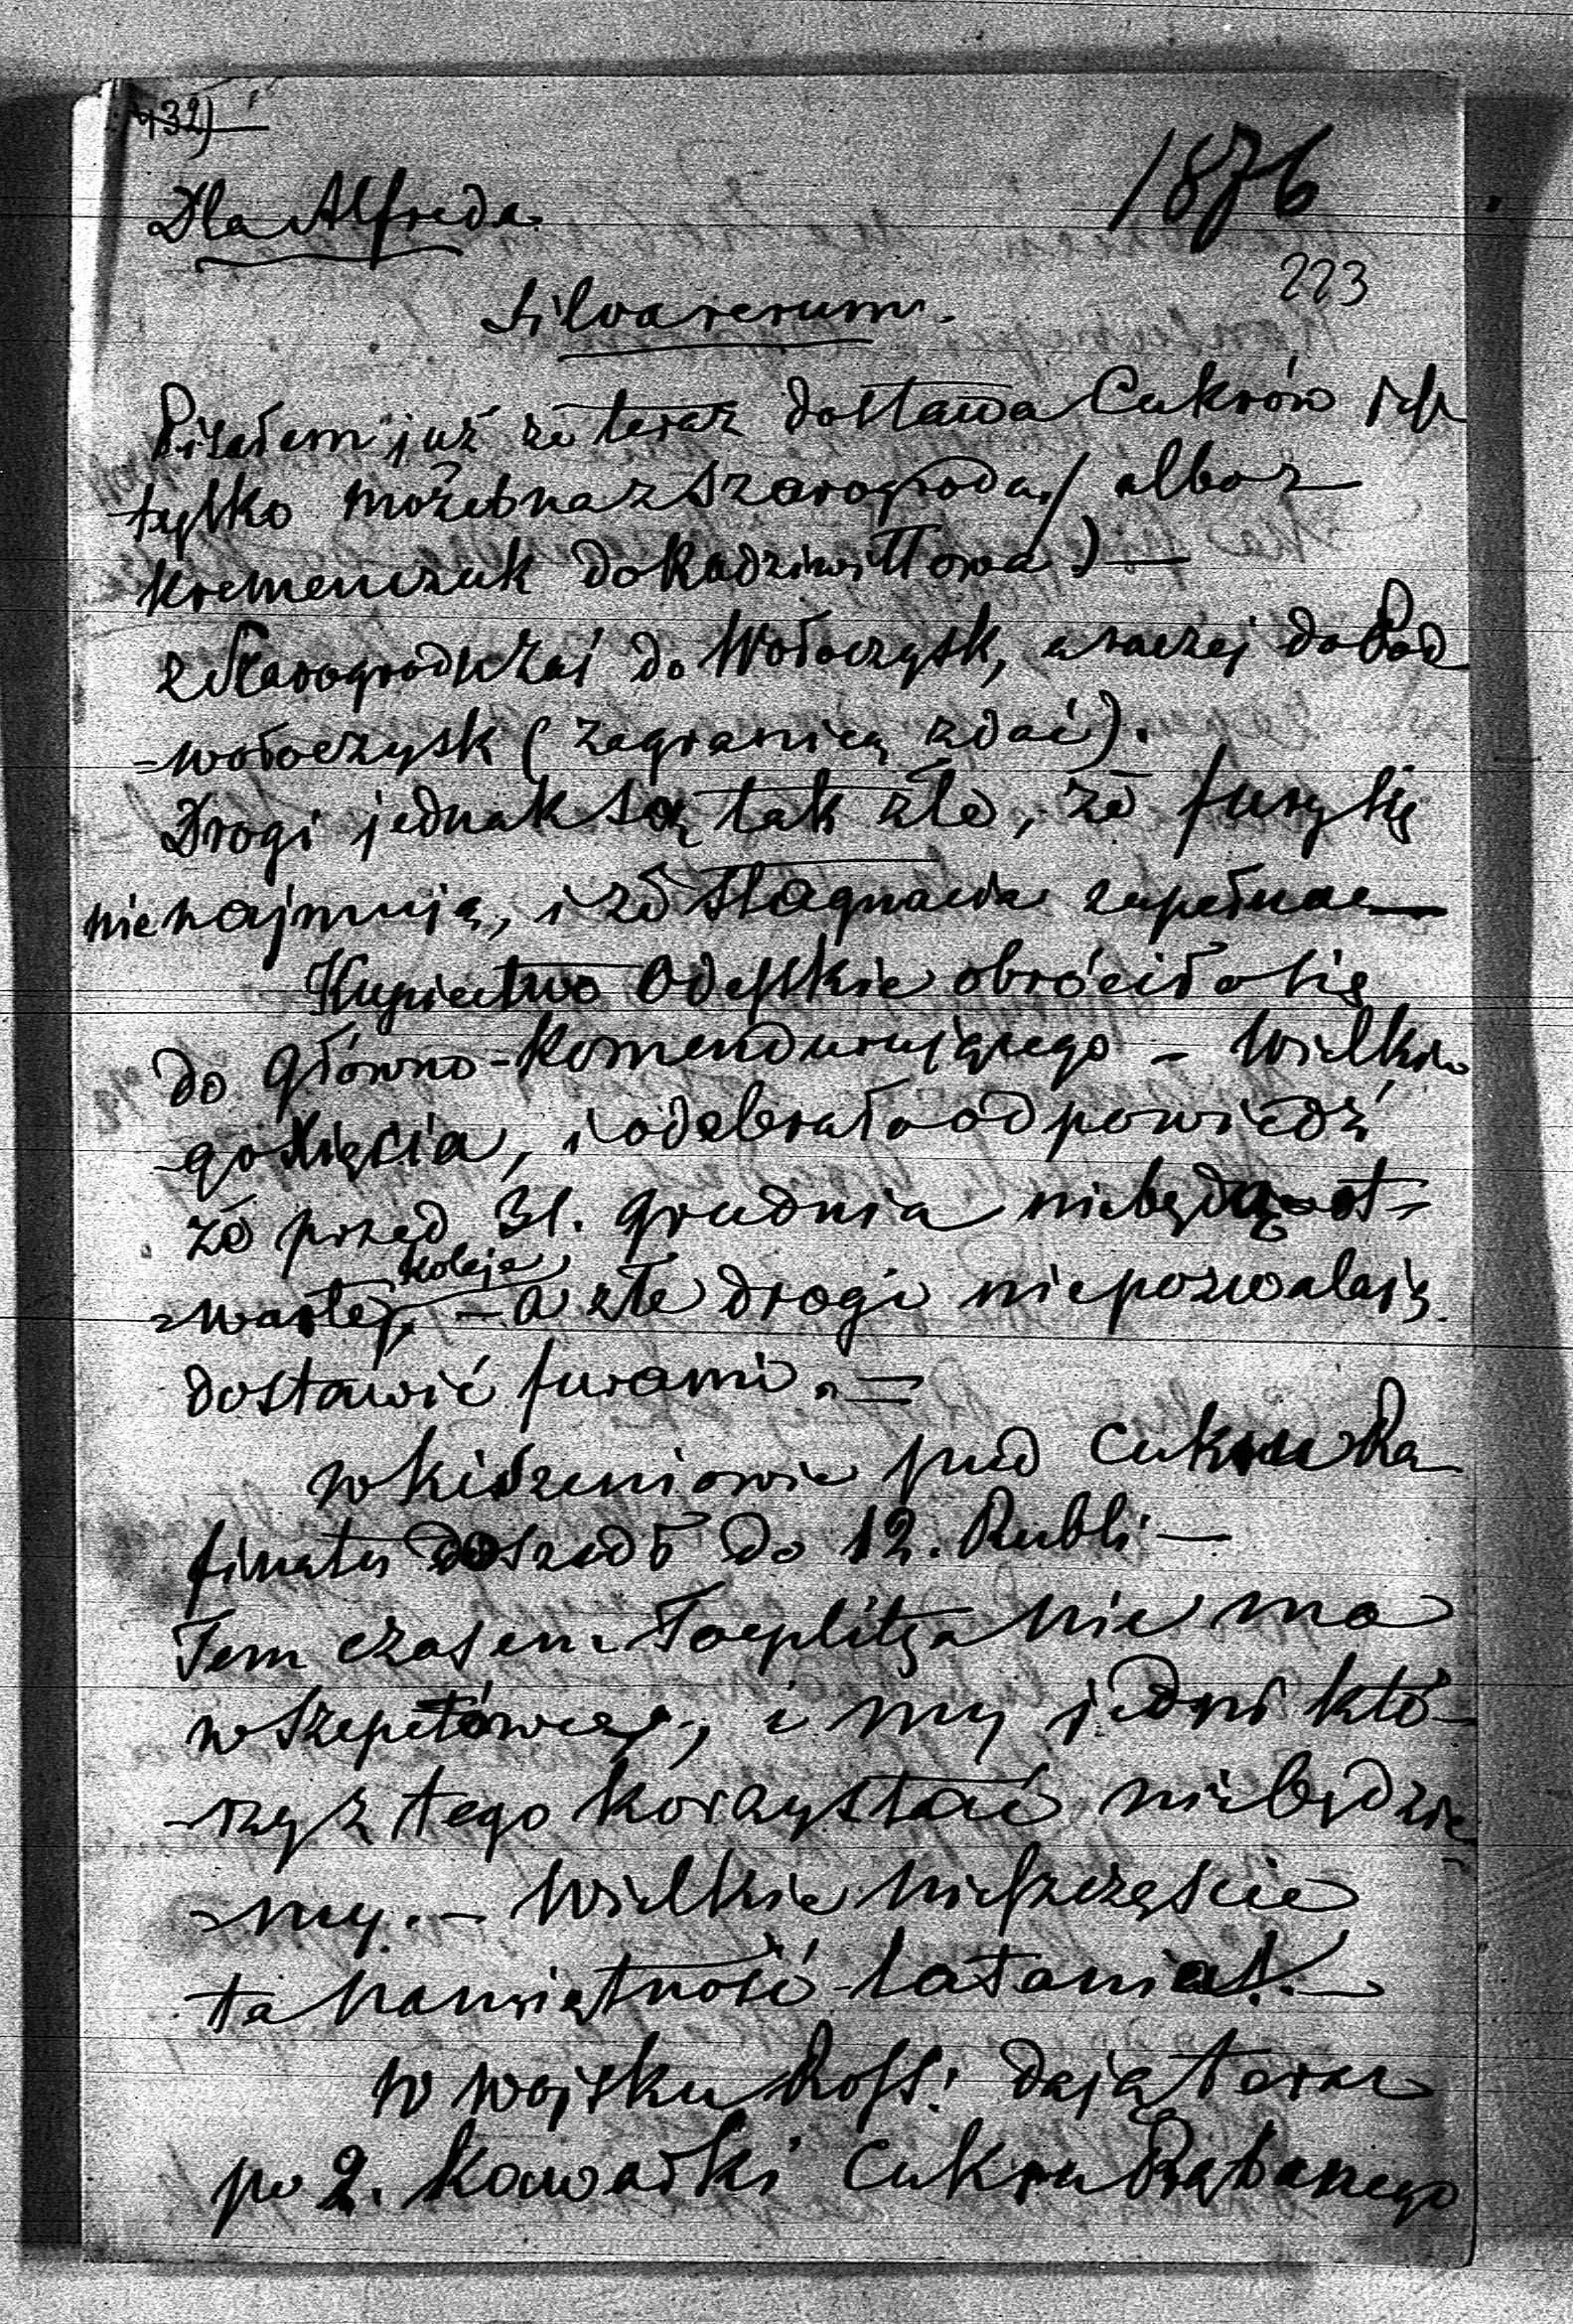 432)
1876
Dla Alfreda.
223
Silva rerum.
Pisałem już że teraz dostawa Cukrów jest
tylko możebna z Starogroda, / albo z
Kremenczuk do Radziwiłłowa) —
z Starogrodu zaś do Wołoczysk, a raczej do Pod
=wołoczysk ( zagranicą zdać).
Drogi jednak są tak złe, że fury się
nie najmują, i że stagnacia zupełna —
Kupiectwo Odesskie obróciło się
do Główno-Komenderującego - Wielkie
-go Xięcia, i odebrało odpowiedź
że przed 31. Grudnia nie będą ot=
koleje
=warte, - a złe drogi nie pozwalają
dostawić furami. =
w Kiszeniowie pud Cukru Ra
finatu doszedł do 12. Rubli —
Tem czasem Toeplitza nie ma
w Szepetówce, i my jedni któ-
-rzy z tego korzystać nie będzie
=my. - Wielkie nieszczęście
ta namiętność latania! —
W wojsku Ross: dają teraz
po 2. Kawałki Cukru Rąbanego